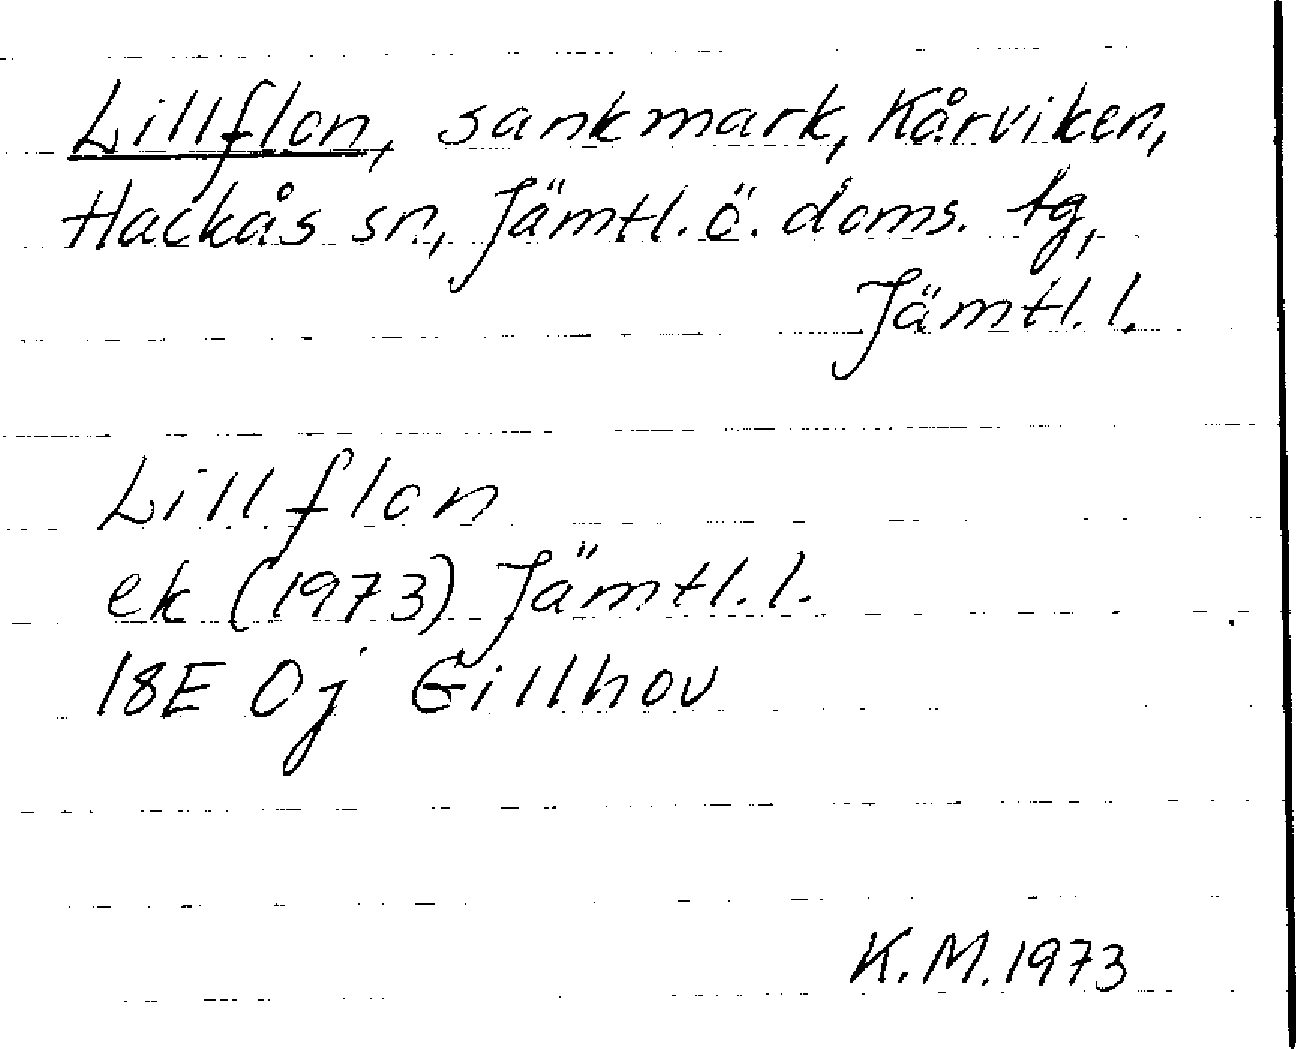 Lillflon, sankmark, Kårviken,
Hackås sn, Jämtl. ö. doms. tg,
Jämtl. l.
Lillflon
ek (1973) Jämtl. l.
18E 0j Gillhov
K.M. 1973